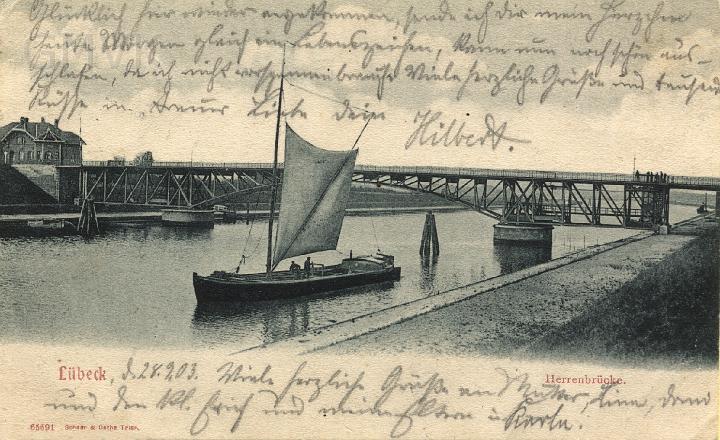 Glücklich hier wieder angekommen, sende ich dir mein Herzchen
heute Morgen gleich ein Lebenszeichen, kann nun noch schön aus-
schlafen, da ich nicht Viele herzliche Grüße und tausend
Küsse in Treuer Liebe dein
Hilbert.
Lübeck, d. 28.9.03. Viele herzliche Grüße an Mutter, Line,
Herrenbrücke.
und den kl. Erich und meine Eltern u Karla.
65691